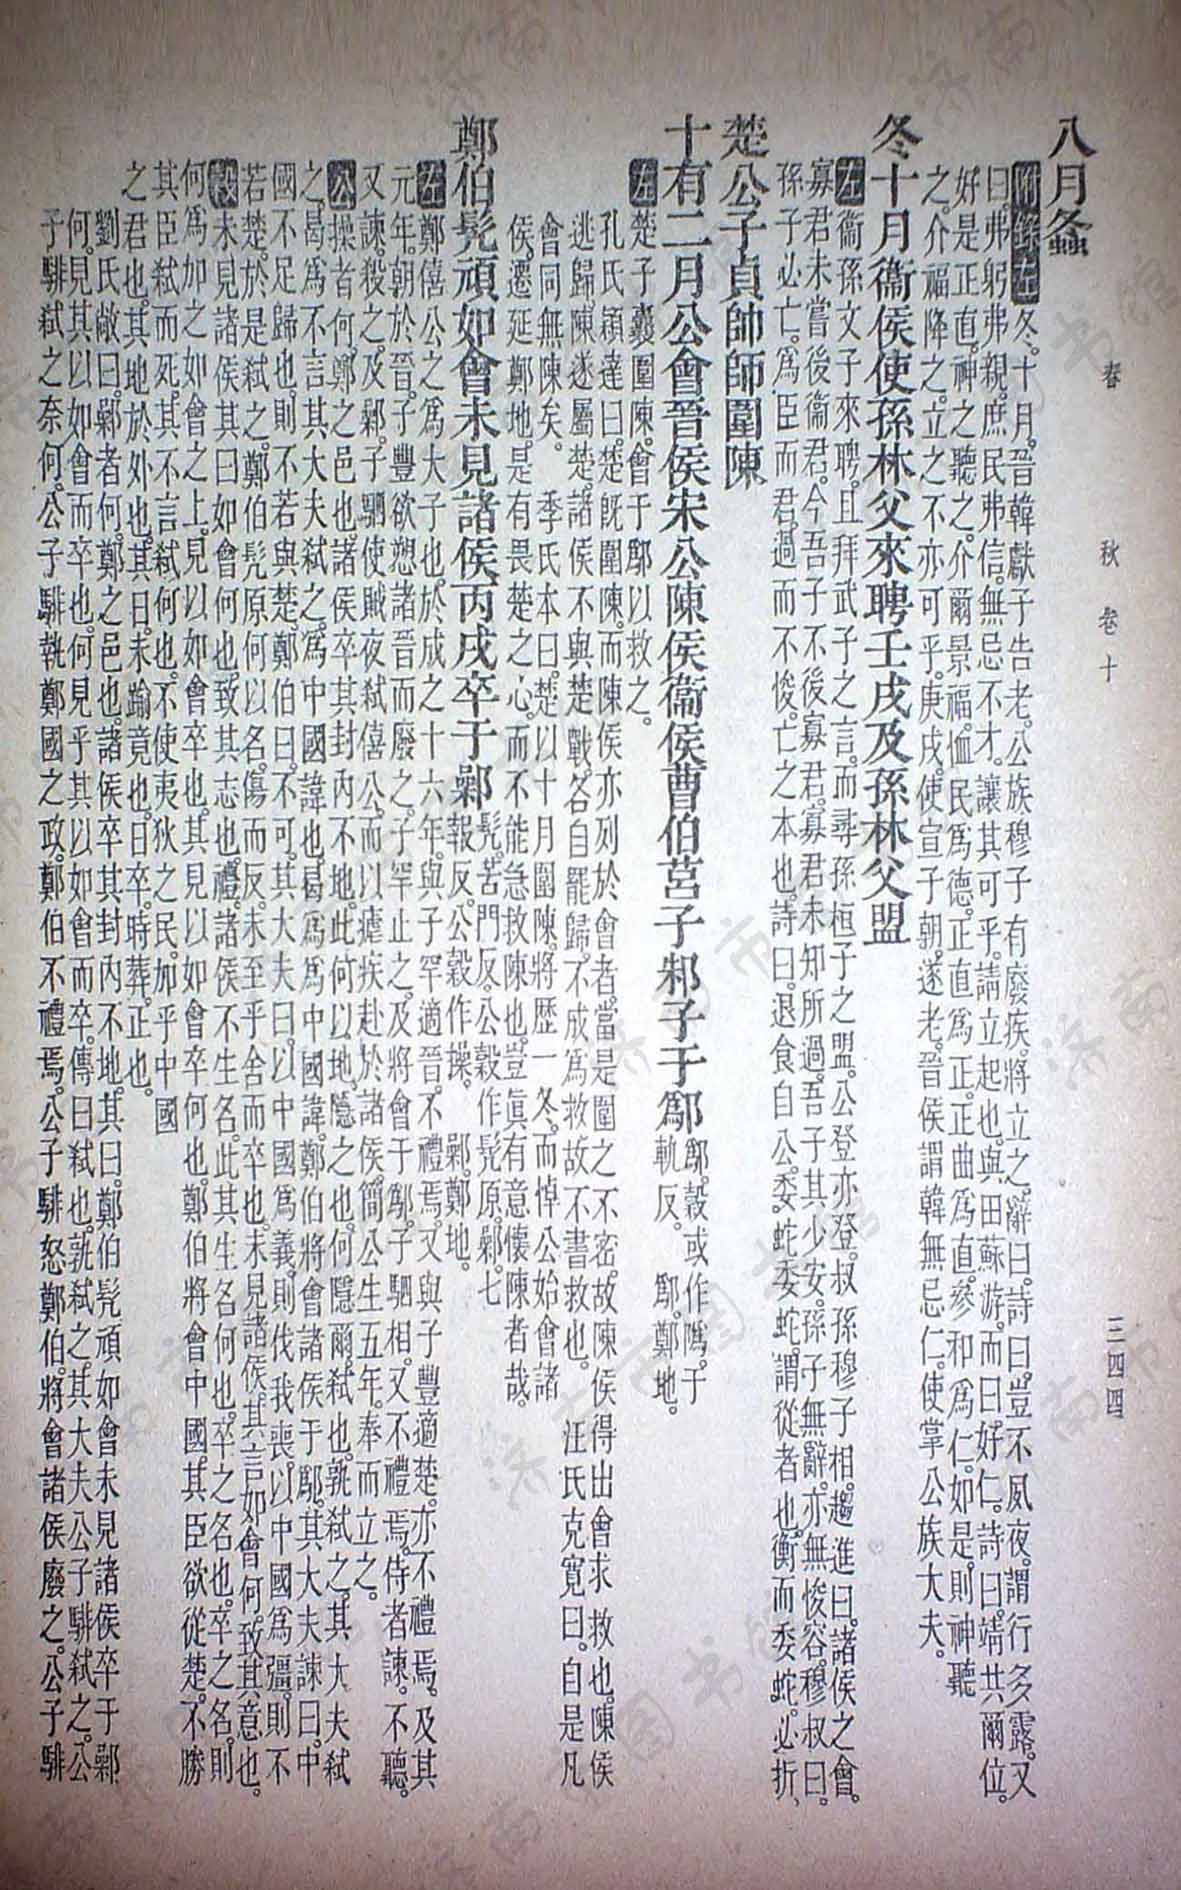 春　秋　卷十　三四四
八月螽
附錄左冬。十月。晉韓獻子告老。公族穆子有廢疾。將立之。辭曰。詩曰。豈不夙夜。謂行多露。又
曰。弗躬弗親。庶民弗信。無忌不才。讓其可乎。請立起也。與田蘇游。而曰好仁。詩曰。靖共爾位。
好是正直。神之聽之。介爾景福。恤民為德。正直為正。正曲為直。參和為仁。如是。則神聽
之。介福降之。立之。不亦可乎。庚戌。使宣子朝。遂老。晉侯謂韓無忌仁。使掌公族大夫。
冬十月衞侯使孫林父來聘壬戌及孫林父盟
左衞孫文子來聘。且拜武子之言。而尋孫桓子之盟。公登亦登。叔孫穆子相。趨進曰。諸侯之會。
寡君未嘗後衞君。今吾子不後寡君。寡君未知所過。吾子其少安。孫子無辭。亦無悛容。穆叔曰。
孫子必亡。為臣而君。過而不悛。亡之本也。詩曰。退食自公。委蛇委蛇。謂從者也。衡而委蛇。必折。
楚公子貞帥師圍陳
十有二月公會晉侯宋公陳侯衞侯曹伯莒子邾子于鄬鄬。穀或作隝。于
軌反。　鄬。鄭地。
左楚子囊圍陳。會于鄬以救之。
孔氏穎達曰。楚旣圍陳。而陳侯亦列於會者。當是圍之不密。故陳侯得出會求救也。陳侯
逃歸。陳遂屬楚。諸侯不與楚戰。各自罷歸。不成為救。故不書救也。　汪氏克寬曰。自是凡
會同無陳矣。　季氏本曰。楚以十月圍陳。將歷一冬。而悼公始會諸
侯。遷延鄭地。是有畏楚之心。而不能急救陳也。豈眞有意懷陳者哉。
鄭伯髡頑如會未見諸侯丙戌卒于鄵髡。苦門反。公穀作髡原。鄵。七
報反。公穀作操。　鄵。鄭地。
左鄭僖公之為大子也。於成之十六年。與子罕適晉。不禮焉。又與子豐適楚。亦不禮焉。及其
元年。朝於晉。子豐欲愬諸晉而廢之。子罕止之。及將會于鄬。子駟相。又不禮焉。侍者諫。不聽。
又諫。殺之。及鄵。子駟使賊夜弒僖公。而以瘧疾赴於諸侯。簡公生五年。奉而立之。
公操者何。鄭之邑也。諸侯卒其封內不地。此何以地。隱之也。何隱爾。弒也。孰弒之。其大夫弒
之。曷為不言其大夫弒之。為中國諱也。曷為為中國諱。鄭伯將會諸侯于鄬。其大夫諫曰。中
國不足歸也。則不若與楚。鄭伯曰。不可。其大夫曰。以中國為義。則伐我喪。以中國為彊。則不
若楚。於是弒之。鄭伯髡原何以名。傷而反。未至乎舍而卒也。未見諸侯。其言如會何。致其意也。
穀未見諸侯。其曰如會何也。致其志也。禮。諸侯不生名。此其生名何也。卒之名也。卒之名。則
何為加之如會之上。見以如會卒也。其見以如會卒何也。鄭伯將會中國。其臣欲從楚。不勝
其臣。弒而死。其不言弒何也。不使夷狄之民。加乎中國
之君也。其地於外也。其日。未踰竟也。日卒。時葬。正也。
劉氏敞曰。鄵者何。鄭之邑也。諸侯卒其封內不地。其曰。鄭伯髡頑如會未見諸侯卒于鄵
何。見其以如會而卒也。何見乎其以如會而卒。傳曰弒也。孰弒之。其大夫公子騑弒之。公
子騑弒之奈何。公子騑執鄭國之政。鄭伯不禮焉。公子騑怒。鄭伯將會諸侯廢之。公子騑